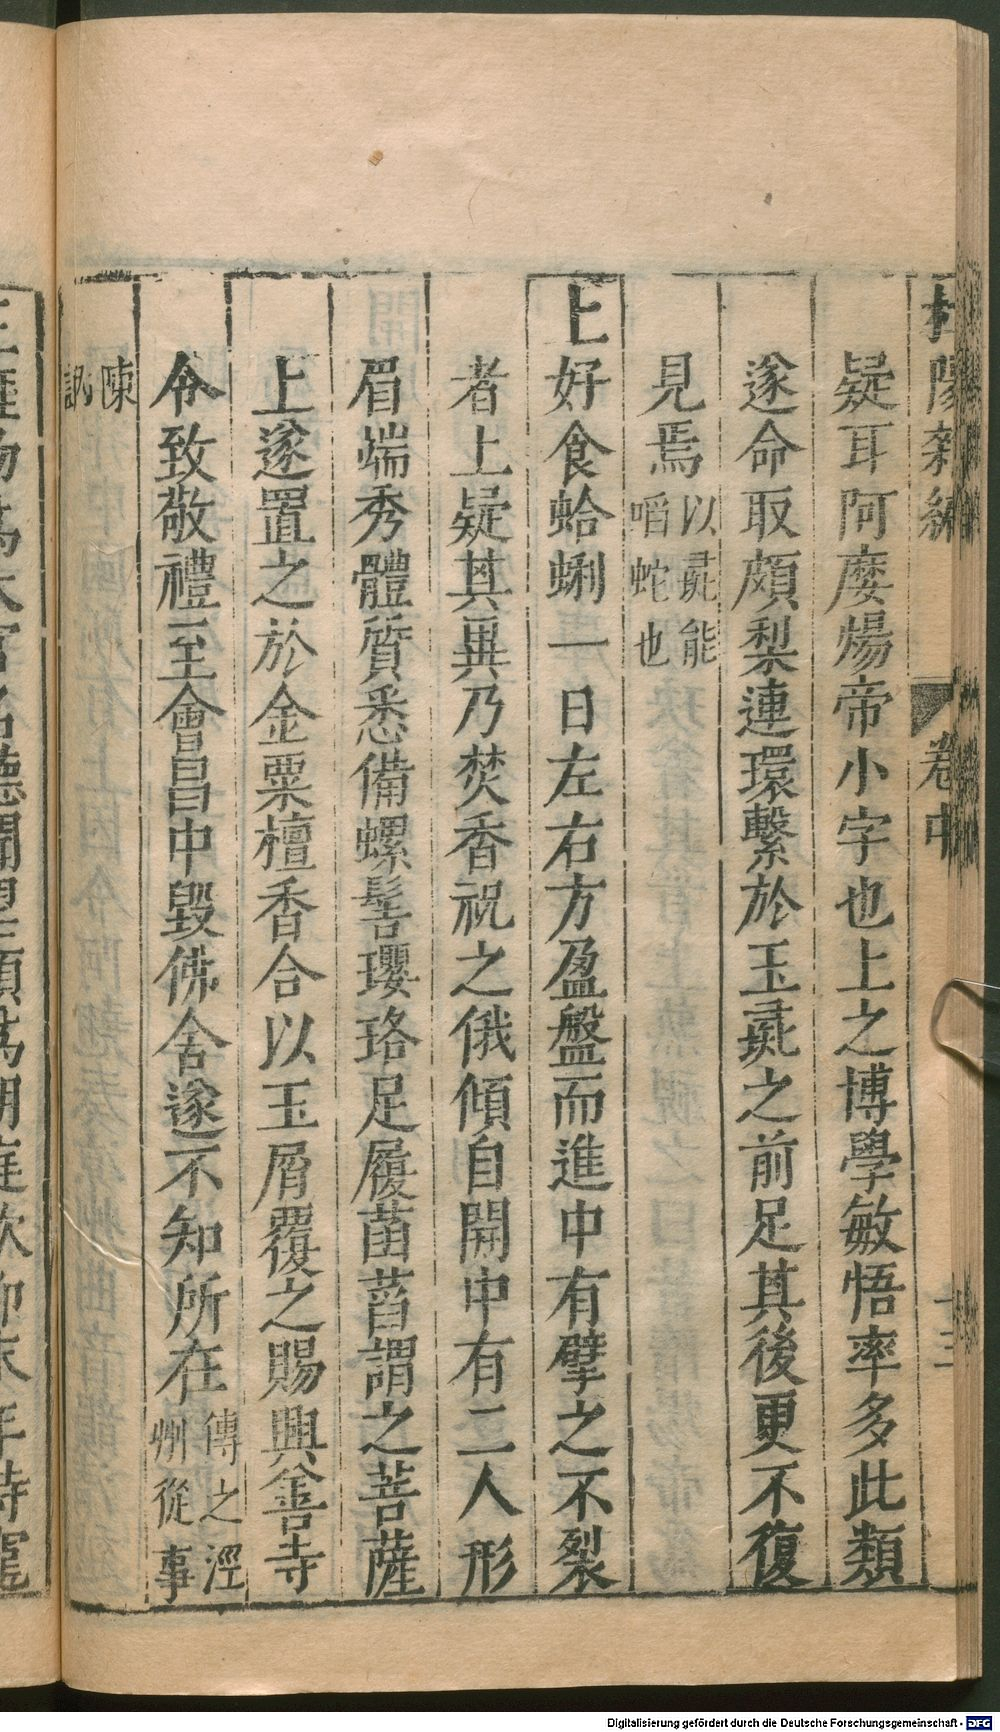 杜陽雜編 卷中
疑耳阿㦄煬帝小字也上之博學敏悟率多此類
遂命取頗梨連環繫於玉彘之前足其後更不復
見焉以彘能㗖蛇也
上好食蛤蜊一日左右方盈盤而進中有擘之不裂
者上疑其異乃焚香祝之俄傾自開中有二人形
眉端秀體質悉備螺髻瓔珞足履菡萏謂之菩薩
上遂置之於金粟檀香合以玉屑覆之賜興善寺
令致敬禮至會昌中毀佛舍遂不知所在傳之涇州從事
陳訊
Digitalisierung gefördert durch die Deutsche Forschungsgemeinschaft - DFG